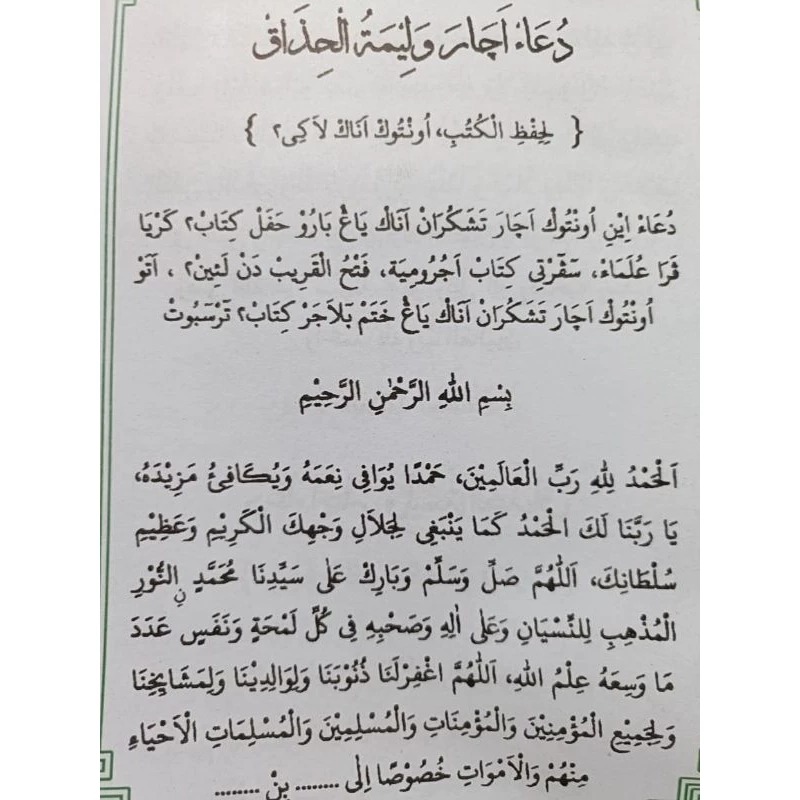 دُعَاءْ اَچَارَ وَلِيْمَةُ الْحِذَاقْ
{ لِحِفْظِ الْكُتُبِ، أُونْتُوكْ اَنَاكْ لَاكِى٢ }
دُعَاءْ اِيْنِ أُونْتُوكْ اَچَارَ تَشَكُرَانْ اَنَاكْ يَاڠْ بَارُوْ حَفَلْ كِتَابْ٢ كَرْيَا
ڤَرَا عُلَمَاءْ، سَڤْرْتِى كِتَابْ اَجُرُومِيَة، فَتْحُ الْقَرِيْبْ دَنْ لَئِيْنْ٢ ، اَتَوْ
أُونْتُوكْ اَچَارَ تَشَكُرَانْ اَنَاكْ يَاڠْ خَتَمْ بَلَاجَرْ كِتَابْ٢ تَرْسَبُوتْ
بِسْمِ اللهِ الرَّحْمٰنِ الرَّحِيْمِ
اَلْحَمْدُ لِلّٰهِ رَبِّ الْعَالَمِيْنَ، حَمْدًا يُوَافِى نِعَمَهُ وَيُكَافِئُ مَزِيْدَهُ،
يَا رَبَّنَا لَكَ الْحَمْدُ كَمَا يَنْبَغِى لِجَلَالِ وَجْهِكَ الْكَرِيْمِ وَعَظِيْمِ
سُلْطَانِكَ، اَللّٰهُمَّ صَلِّ وَسَلِّمْ وَبَارِكْ عَلَى سَيِّدِنَا مُحَمَّدٍ نِ النُّوْرِ
الْمُذْهِبِ لِلنِّسْيَانِ وَعَلَى اٰلِهِ وَصَحْبِهِ فِى كُلِّ لَمْحَةٍ وَنَفَسٍ عَدَدَ
مَا وَسِعَهُ عِلْمُ اللهِ، اَللّٰهُمَّ اغْفِرْلَنَا ذُنُوْبَنَا وَلِوَالِدِيْنَا وَلِمَشَايِخِنَا
وَلِجَمِيْعِ الْمُؤْمِنِيْنَ وَالْمُؤْمِنَاتِ وَالْمُسْلِمِيْنَ وَالْمُسْلِمَاتِ الْاَحْيَاءِ
مِنْهُمْ وَالْاَمْوَاتِ خُصُوْصًا اِلَى ........ بِنْ ........